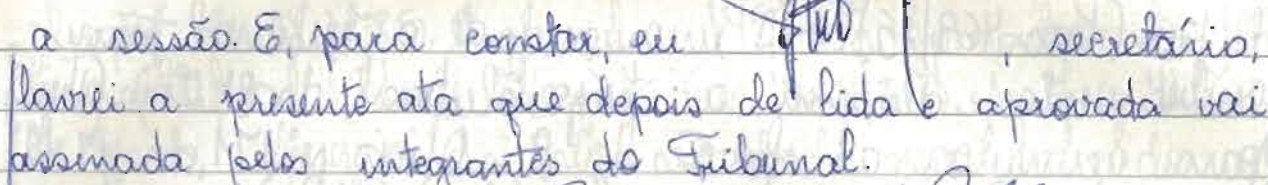 a sessão. E, para constar, eu , secretário,
lavrei a presente ata que depois de lida e aprovada vai
assinada pelos integrantes do Tribunal.